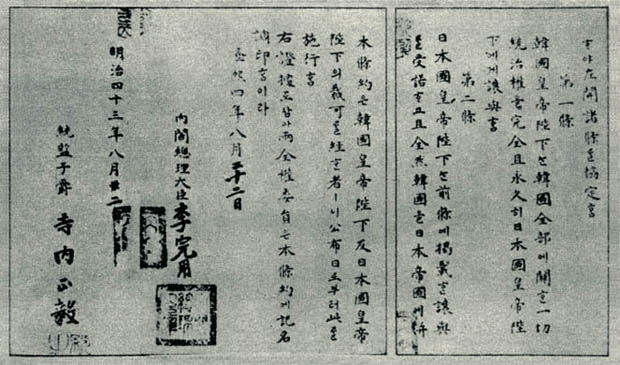 ᄒᆞ야左開諸條ᄅᆞᆯ協定홈
第一條
韓國皇帝陛下ᄂᆞᆫ韓國全部에關ᄒᆞᆫ一切
統治權을完全且永久히日本國皇帝陛
下에게讓與홈
第二條
日本國皇帝陛下ᄂᆞᆫ前條에揭載ᄒᆞᆫ讓與
ᄅᆞᆯ受諾ᄒᆞ고且全然韓國을日本帝國에併
本條約은韓國皇帝陛下及日本國皇帝
陛下의裁可ᄅᆞᆯ經ᄒᆞᆫ者ㅣ니公布日로부터此ᄅᆞᆯ
施行홈
右證據로삼아兩全權委員은本條約에記名
調印홈이라
隆熙四年八月二十二日
內閣總理大臣李完用
明治四十三年八月廿二
統監子爵 寺內正毅